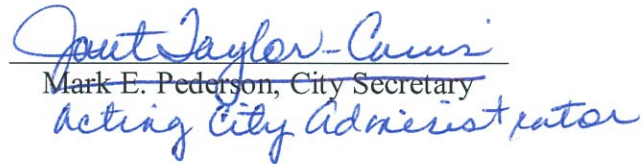 Janet Taylor-
Mark E. Pederson, City Secretary
Acting City Administrator